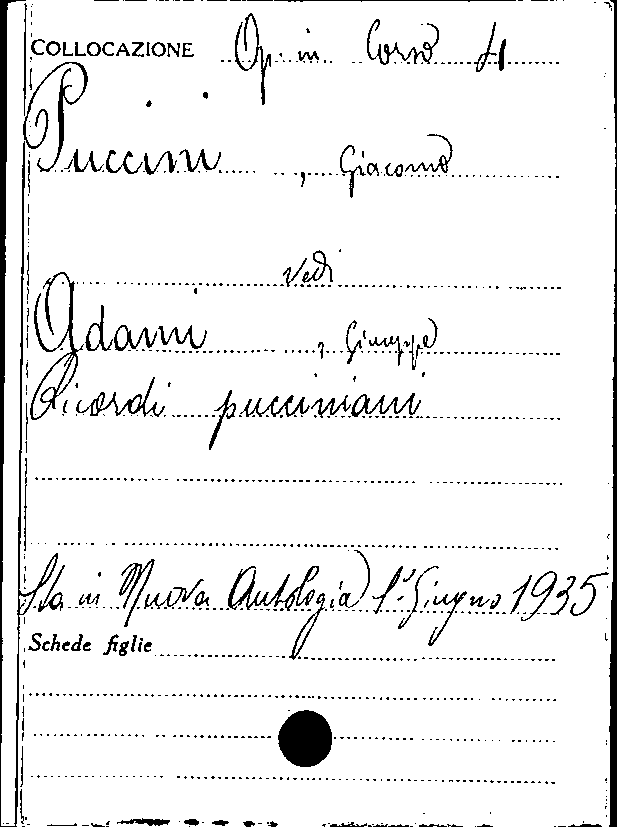 COLLOCAZIONE Op. in Corso 4
Puccini, Giacomo
Vedi
Adami, Giuseppe
Ricordi pucciniani
Sta in Nuova Antologia 1° Giugno 1935
Schede figlie